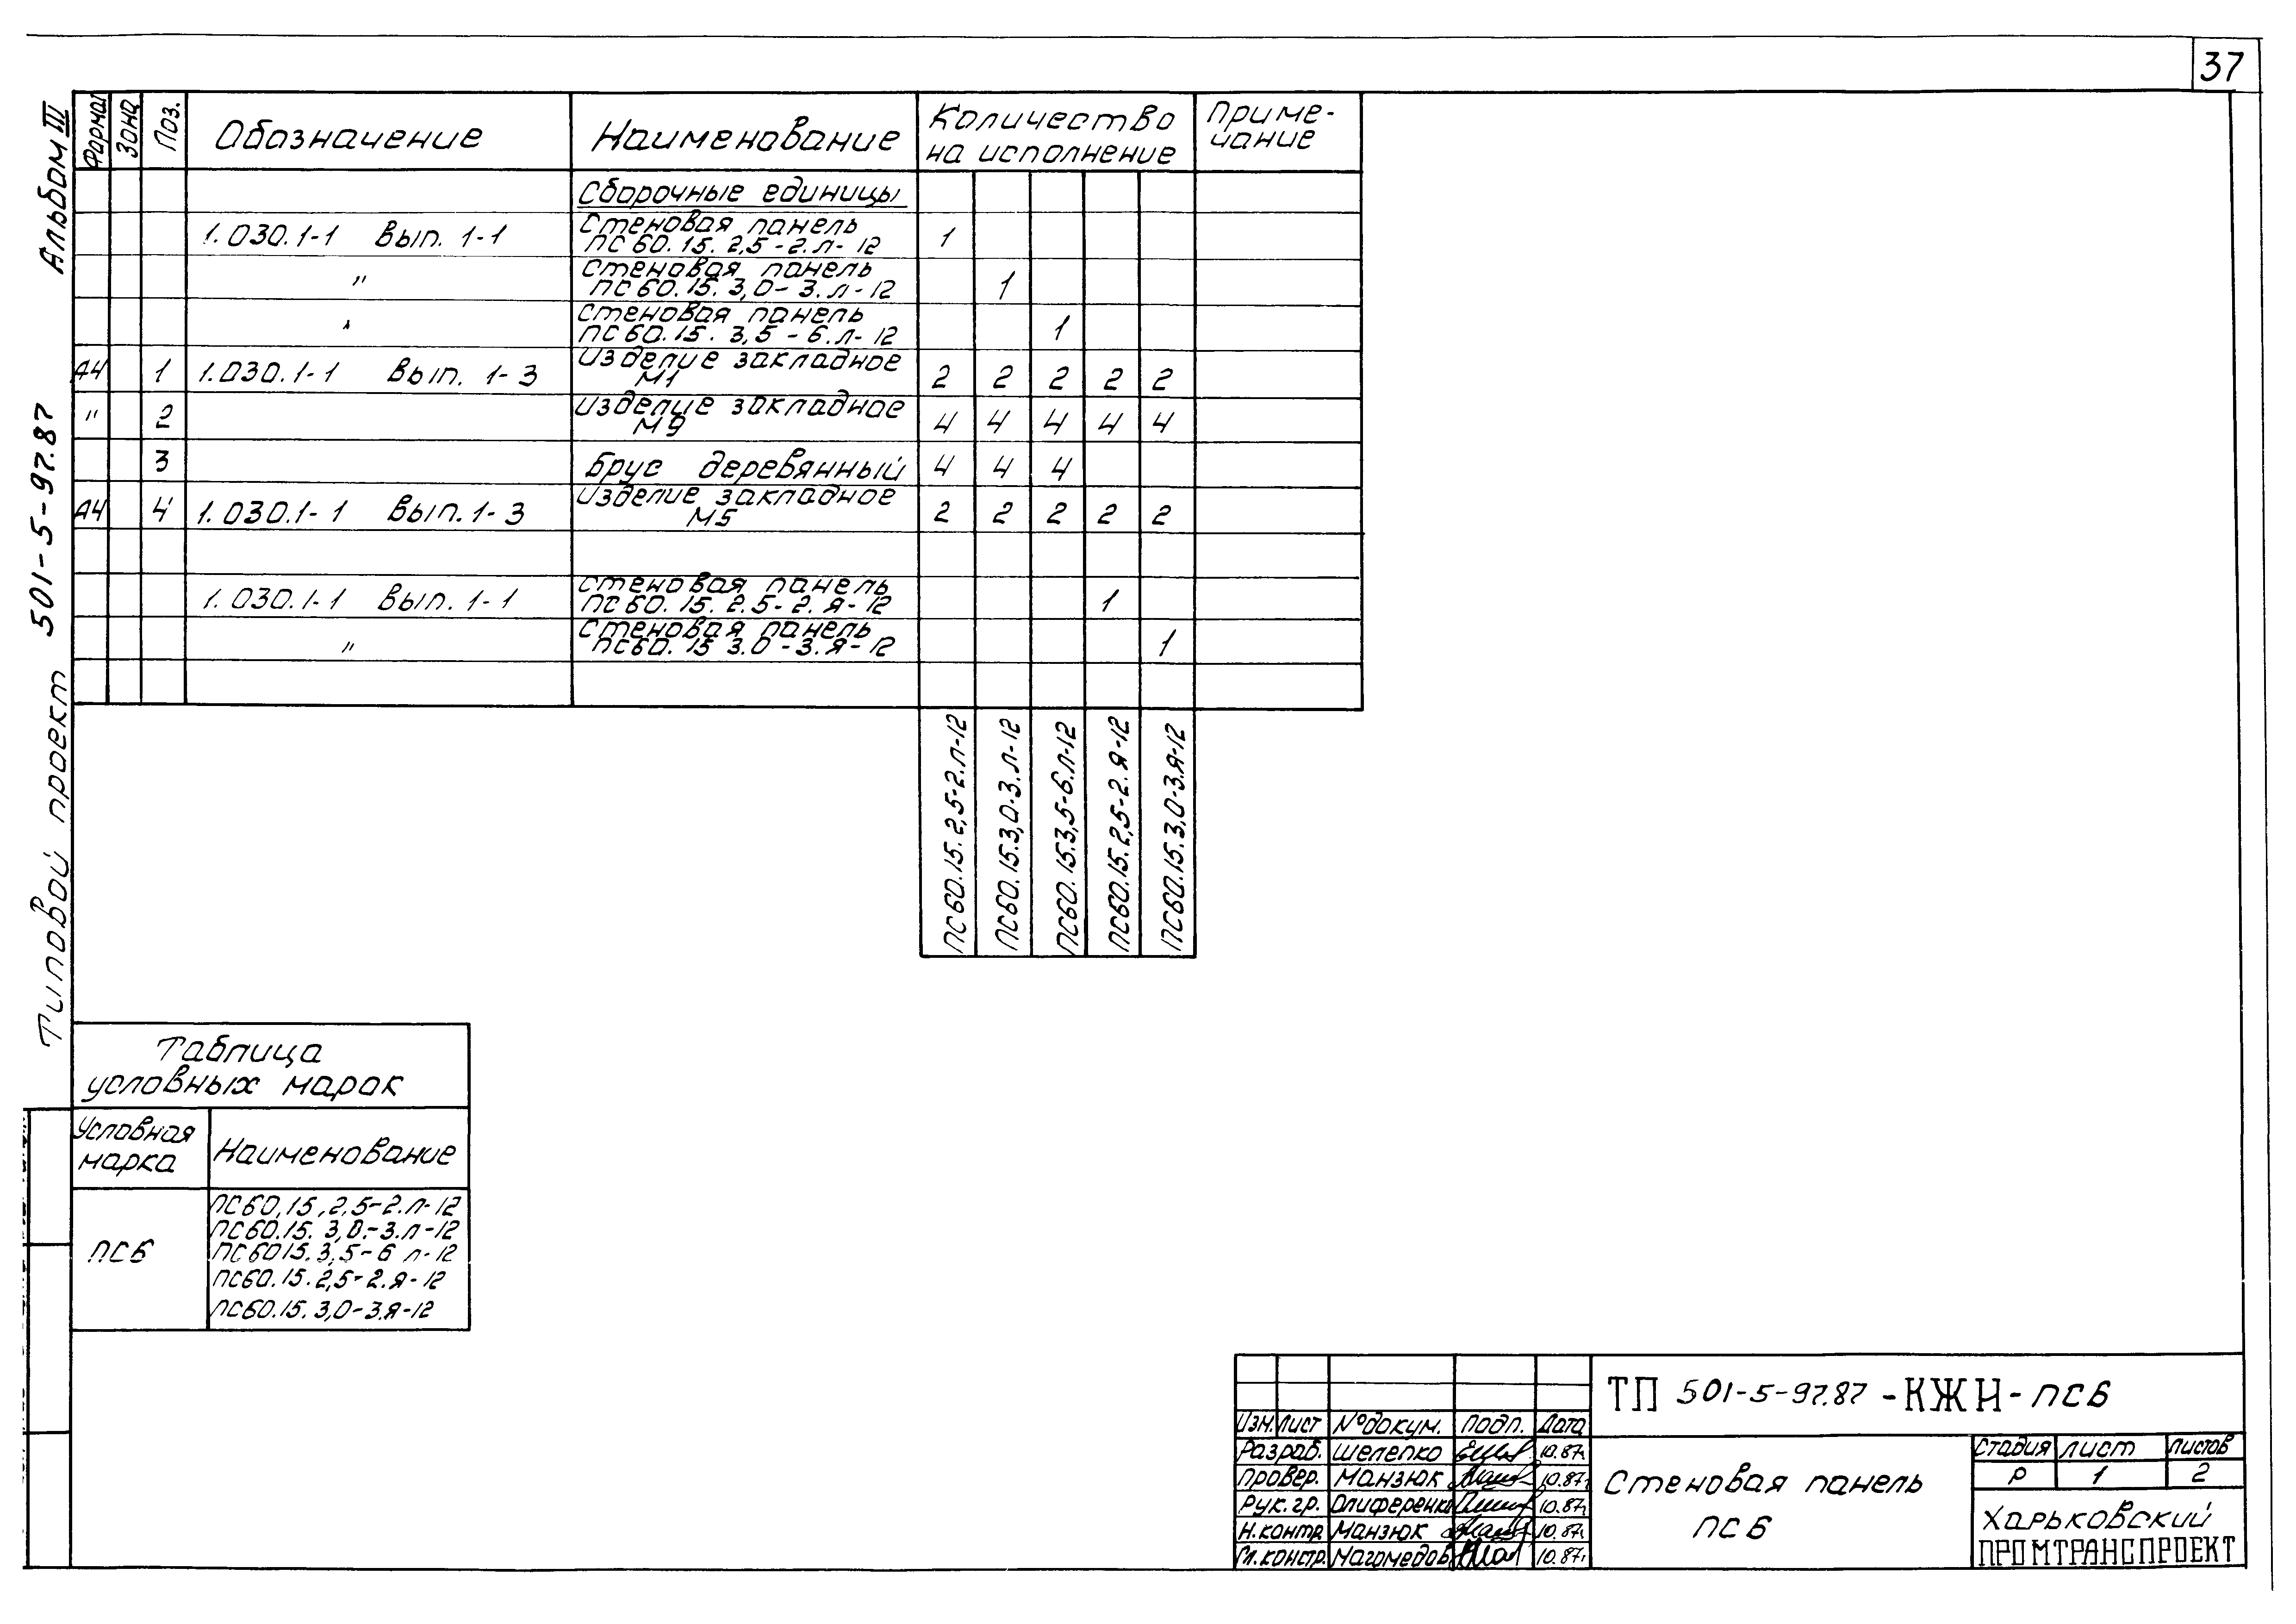 37
Альбом III
Типовой проект 501-5-97.87
Формат Зона Поз. Обозначение Наименование Количество на исполнение Приме-чание
Сборочные единицы
1.030.1-1 Вып. 1-1 Стеновая панель ПС60.15.2,5-2.Л-12 1
" Стеновая панель ПС60.15.3,0-3.Л-12 1
" Стеновая панель ПС60.15.3,5-6.Л-12 1
А4 1 1.030.1-1 Вып. 1-3 Изделие закладное М1 2 2 2 2 2
" 2 Изделие закладное М9 4 4 4 4 4
3 Брус деревянный 4 4 4
А4 4 1.030.1-1 Вып. 1-3 Изделие закладное М5 2 2 2 2 2
1.030.1-1 Вып. 1-1 Стеновая панель ПС60.15.2.5-2.Я-12 1
" Стеновая панель ПС60.15 3.0-3.Я-12 1
ПС60.15.2,5-2.Л-12
ПС60.15.3,0-3.Л-12
ПС60.15.3,5-6.Л-12
ПС60.15.2,5-2.Я-12
ПС60.15.3,0-3.Я-12
Таблица
условных марок
Условная марка Наименование
ПС6
ПС60,15,2,5-2.Л-12
ПС60.15.3,0-3.Л-12
ПС6015.3,5-6 Л-12
ПС60.15.2,5-2.Я-12
ПС60.15.3,0-3.Я-12
ТП 501-5-97.87-КЖН-ПС6
Изм. Лист № докум. Подп. Дата
Разраб. Шелепко 10.87г.
Провер. Манзюк 10.87г.
Рук. гр. Олиференко 10.87г.
Н.контр. Манзюк 10.87г.
Гл.констр. Магомедов 10.87г.
Стеновая панель
ПС6
Стадия Лист Листов
Р 1 2
Харьковский
ПРОМТРАНСПРОЕКТ